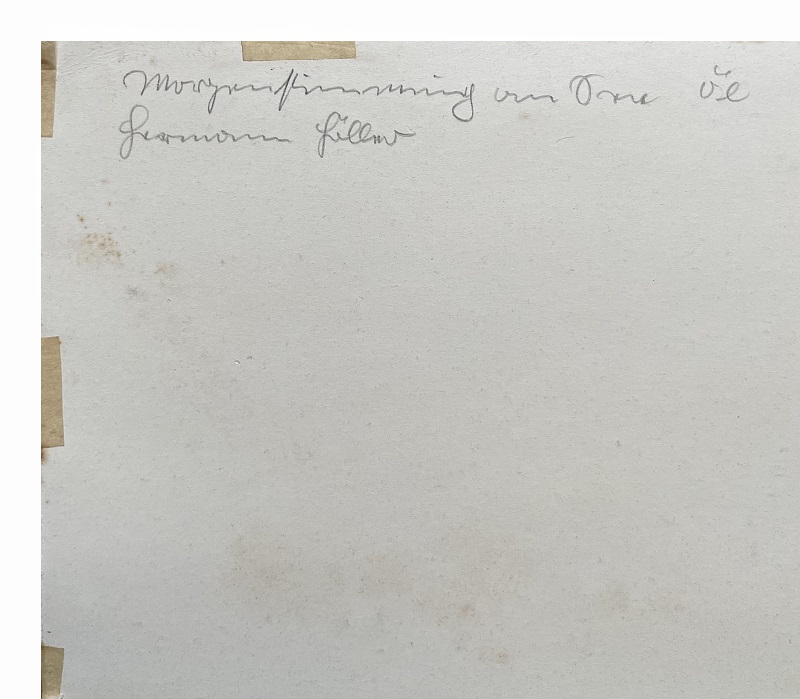 Morgenstimmung am See Öl
Hermann Höller